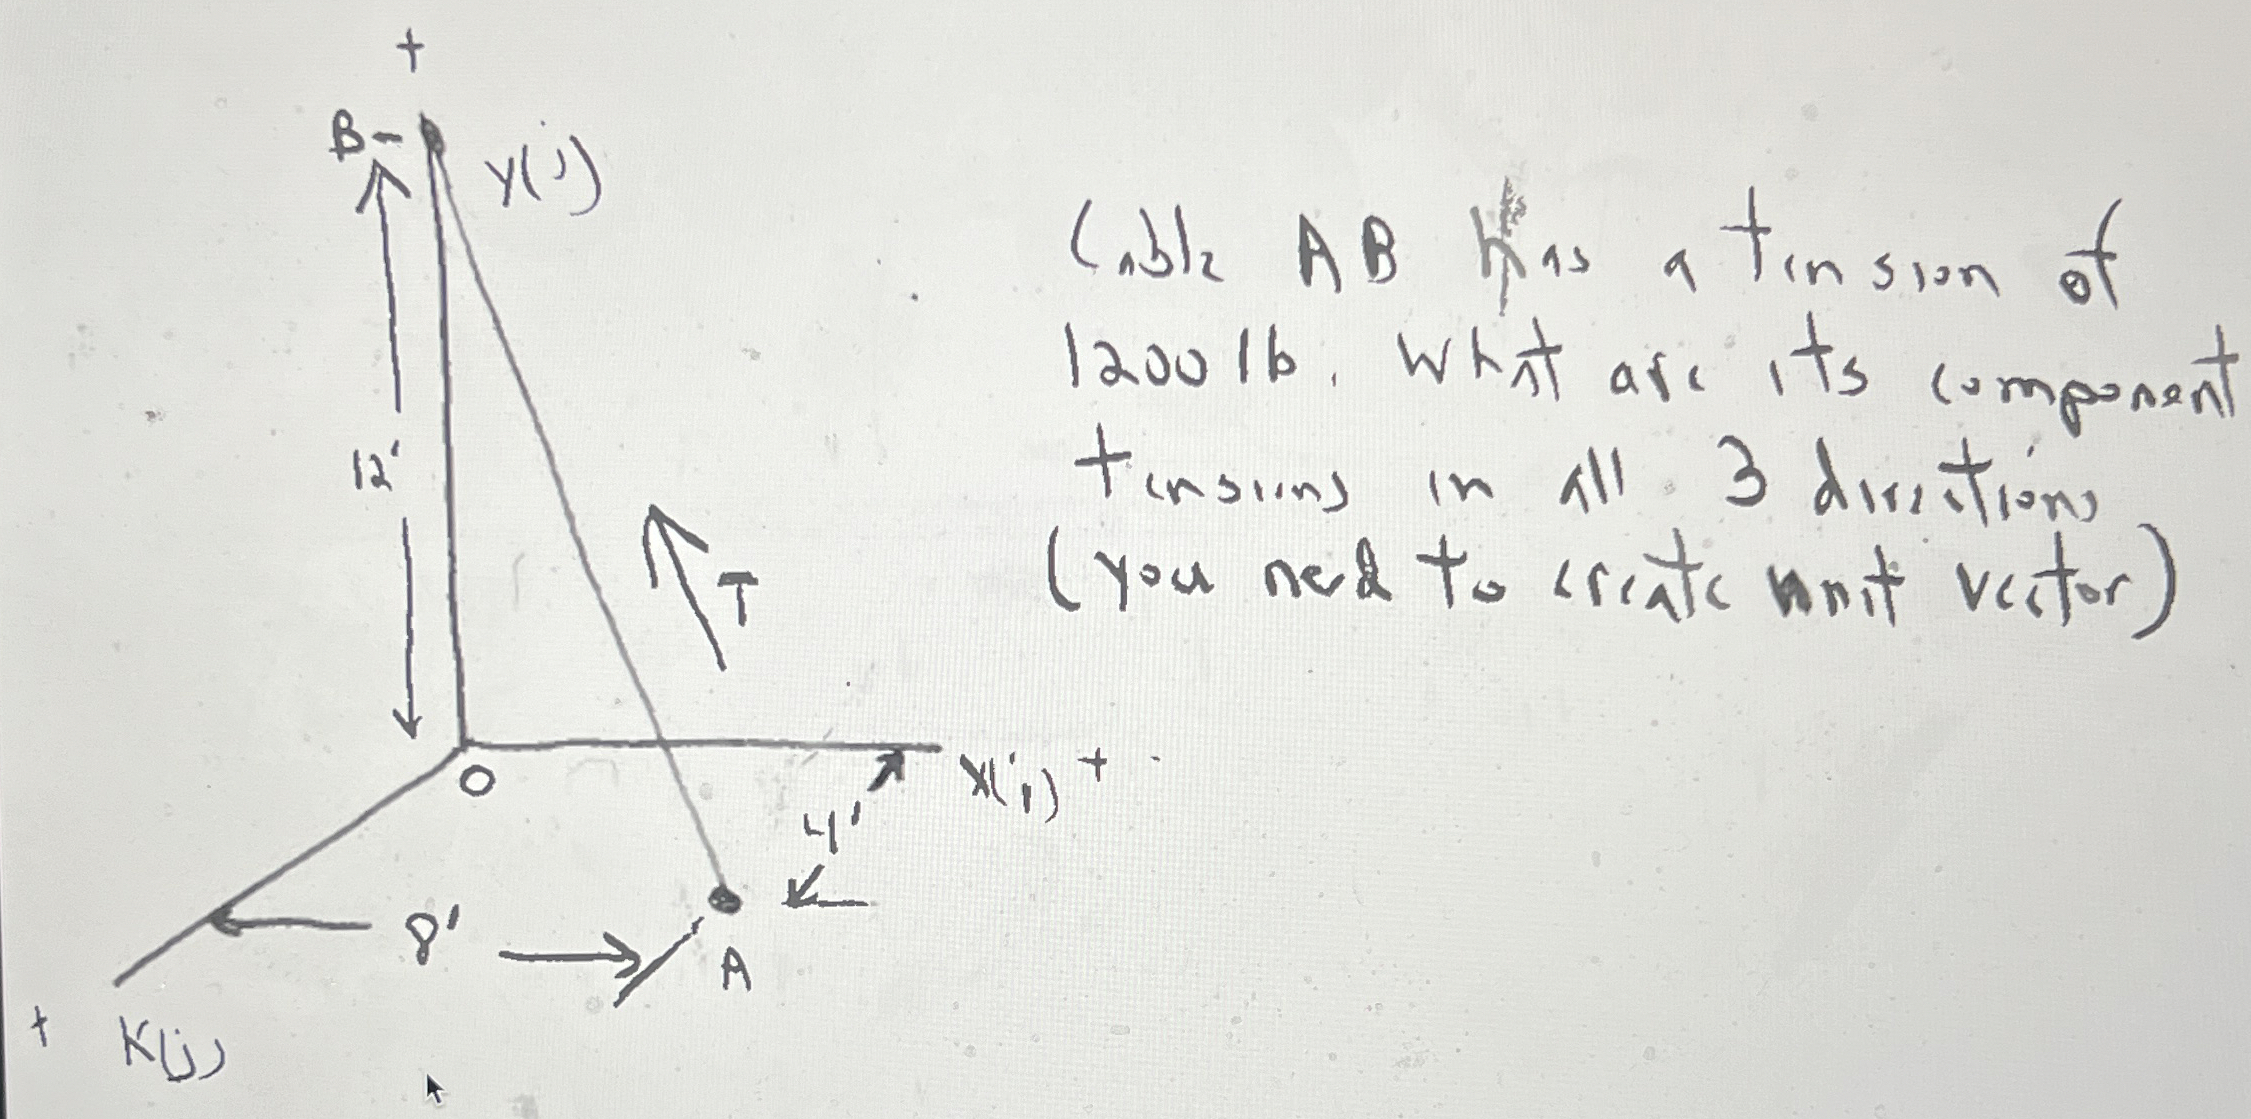 +
B-
y(j)
Cable AB has a tension of
1200 lb. What are its component
tensions in all 3 directions
(you need to create unit vector)
12'
T
O
x(i) +
4'
8'
A
+ K(j)